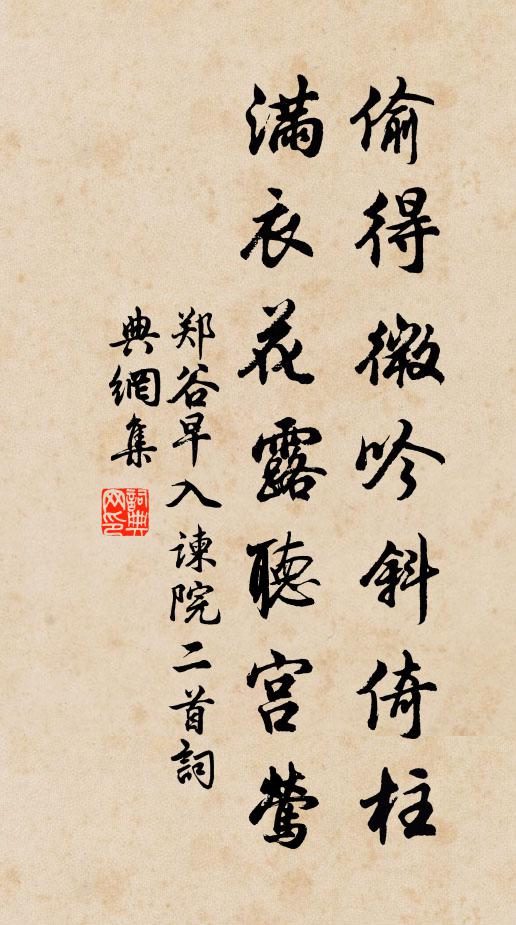 偷得微吟斜倚柱
满衣花露聽宫莺
郑谷早入谏院二首詞
典網集
詞典网印